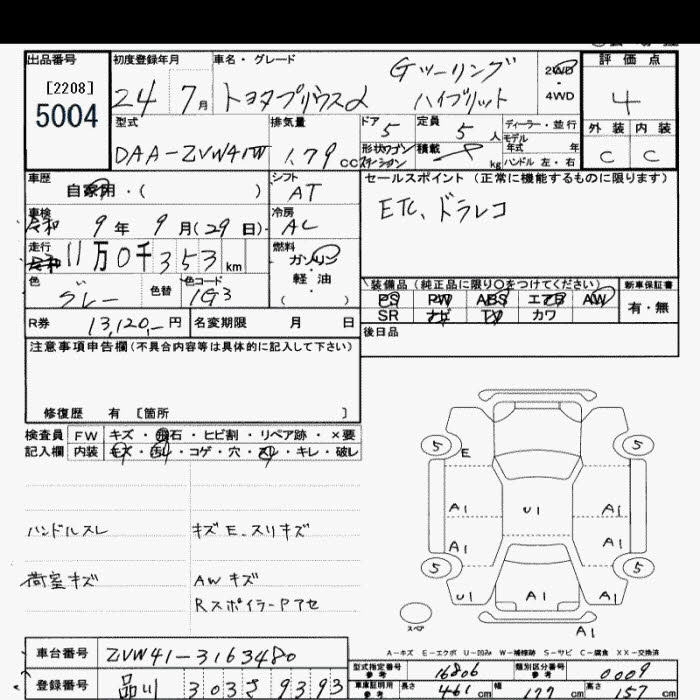 出品番号
[2208]
5004
初度登録年月
24 7月
車名・グレード
トヨタプリウスα
Gツーリング
ハイブリット
2WD
4WD
評価点
4
外装 内装
C C
型式
DAA-ZVW41W
排気量
1.79 cc
ドア
5
定員
5 人
形状 ワゴン
ステーション
積載
kg
ディーラー・並行
モデル
年式 年
ハンドル 左・右
車歴
自家用・( )
シフト
AT
車検
令和 9年 9月(29日)
冷房
AC
走行
11万0千353km
燃料
ガソリン
・
軽油
( )
色
グレー
色替
色コード
1G3
R券
13,120.-円
名変期限 月 日
セールスポイント(正常に機能するものに限ります)
ETC、ドラレコ
装備品(純正品に限り○をつけてください)
新車保証書
PS PW ABS エアB AW
SR ナビ TV カワ
有・無
後日品
注意事項申告欄(不具合内容等は具体的に記入して下さい)
修復歴 有 [箇所 ]
検査員
記入欄
FW キズ・飛石・ヒビ割・リペア跡・×要
内装 キズ・汚れ・コゲ・穴・スレ・キレ・破レ
ハンドルスレ
キズE、スリキズ
荷室キズ
AWキズ
Rスポイラー P アセ
5 5
E
A1 U1 A1
A1 A1
5 5
U1 A1 A1
スペア
A1
A-キズ E-エクボ U-凹み W-補修跡 S-サビ C-腐食 XX-交換済
車台番号
ZVW41-3163480
登録番号
品川 303 さ 9393
型式指定番号
参考
16806
類別区分番号
参考
0009
車庫証明用
参考
長さ 461 cm
幅 177 cm
高さ 157 cm